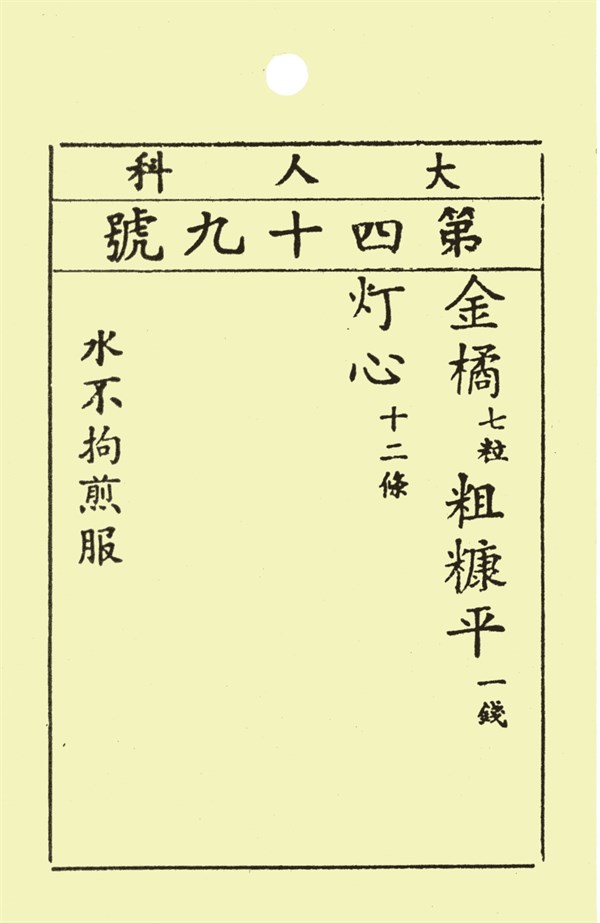 大人科
第四十九號
金橘七粒 粗糠平一錢
灯心十二條
水不拘煎服